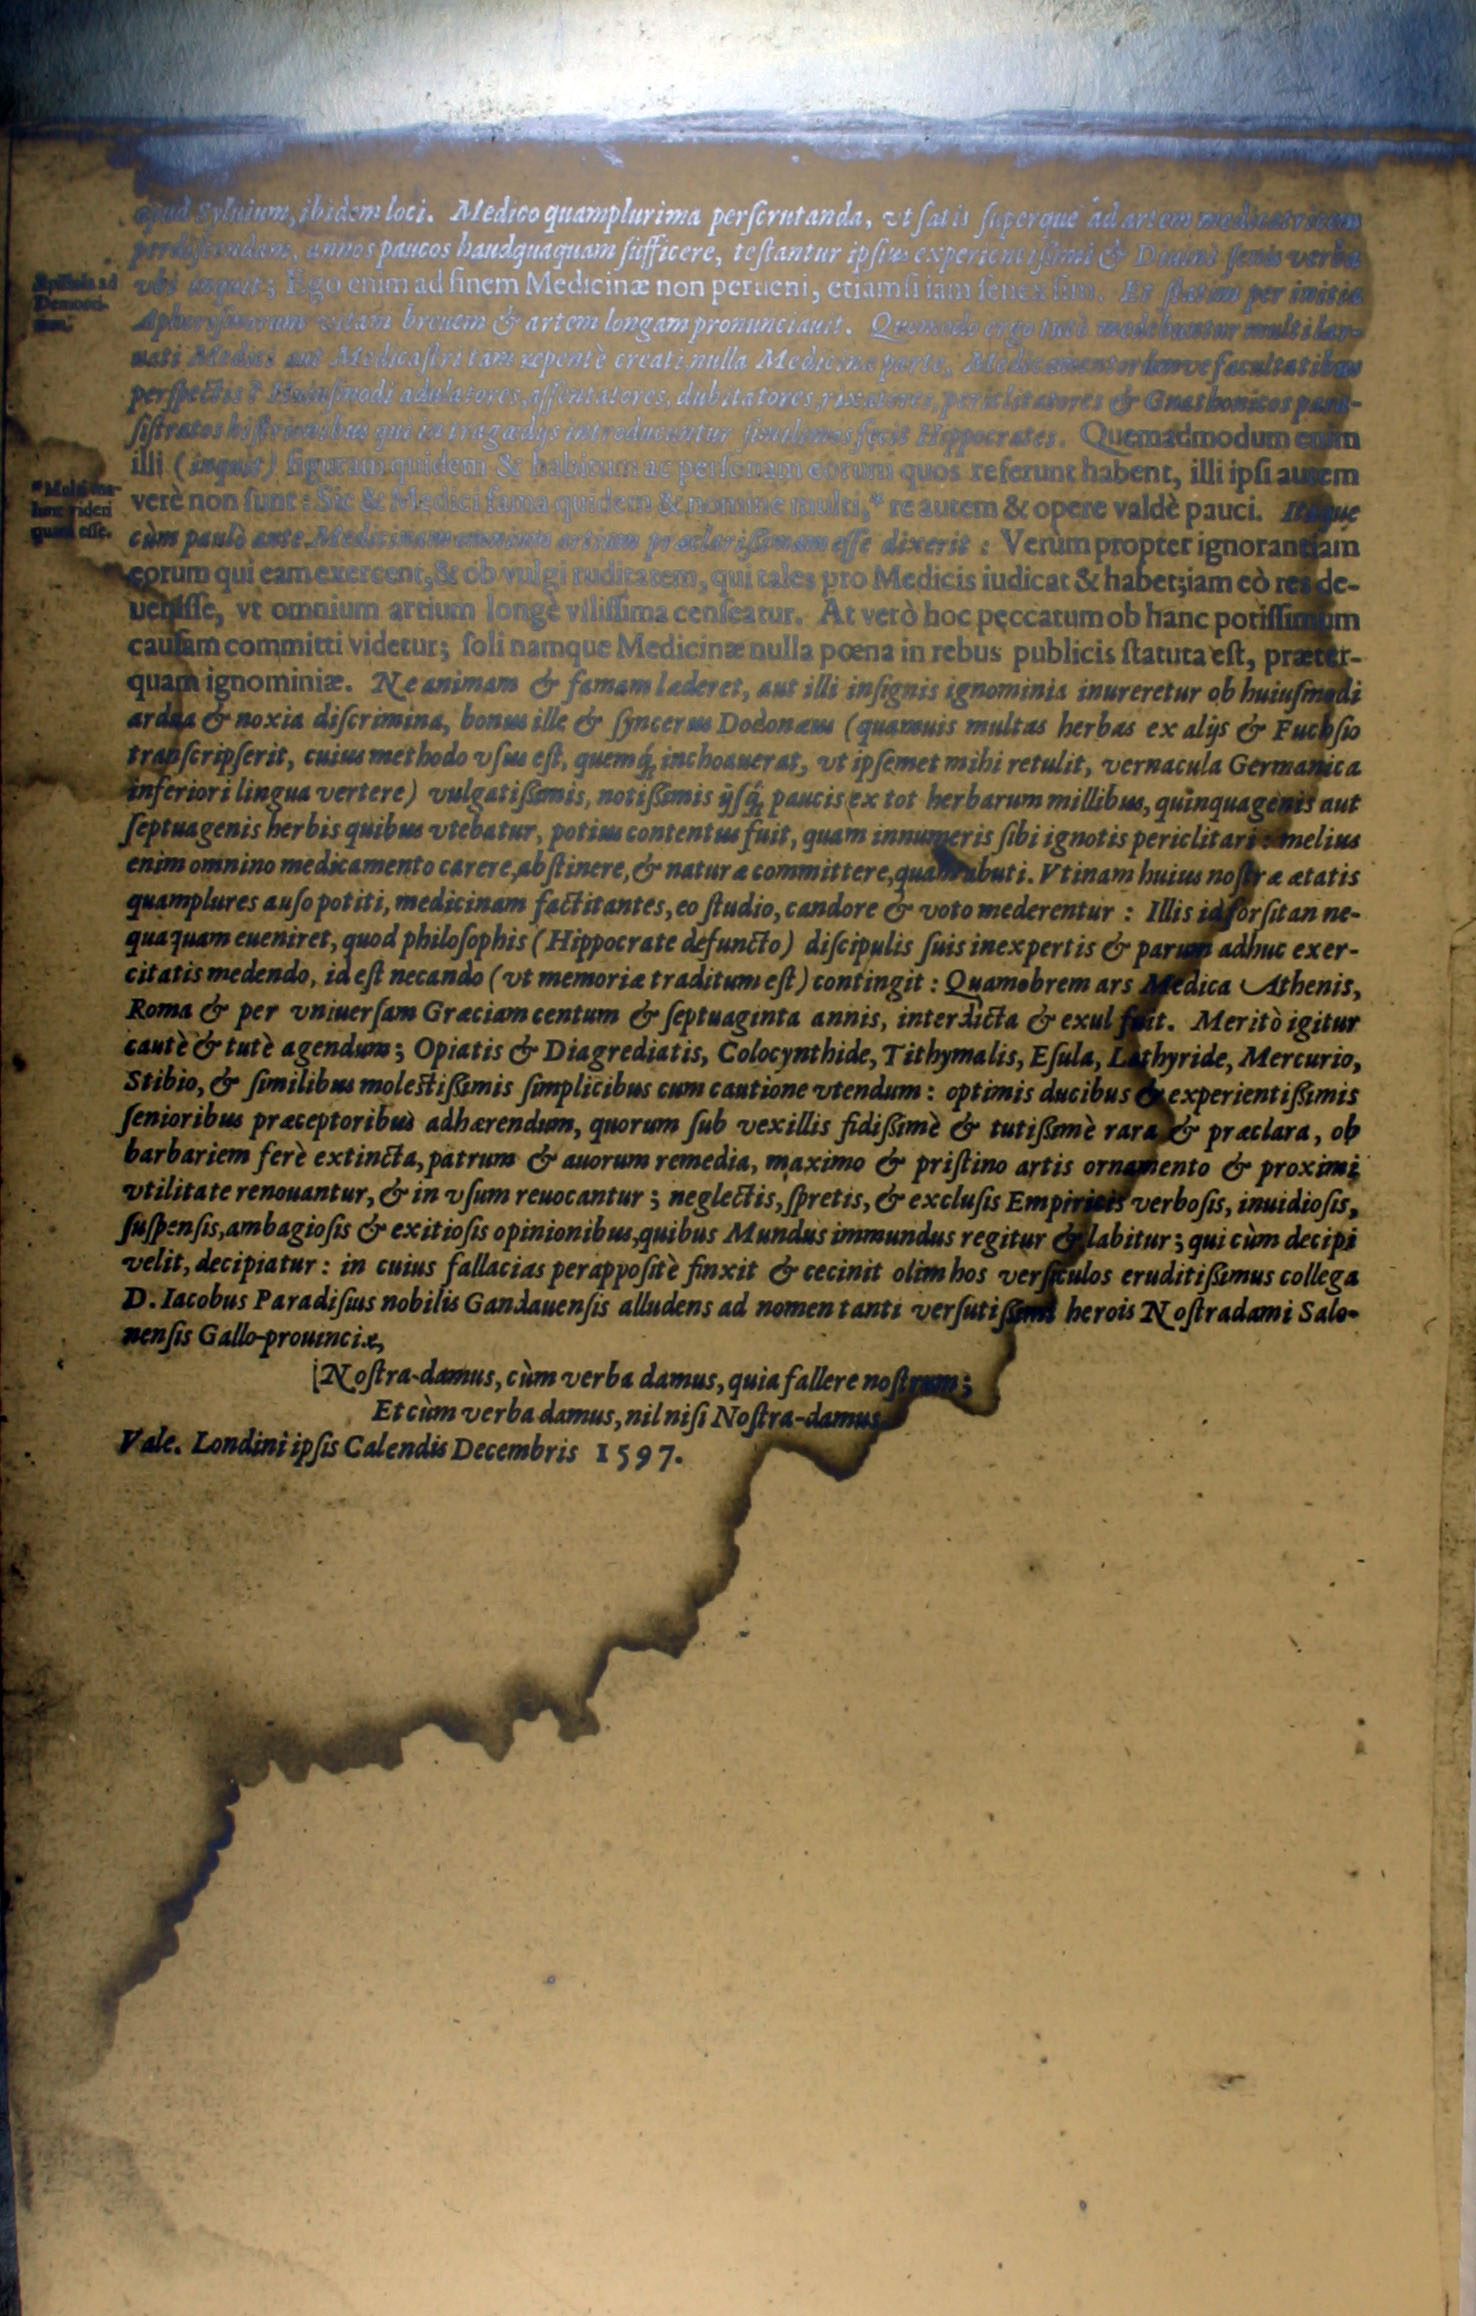 apud Syluium, ibidem loci. Medico quamplurima perſcrutanda, vt ſatis ſuperque ad artem medicatricem
perdiſcendam, annos paucos haudquaquam ſufficere, teſtantur ipſius experientißimi & Diuini ſenis verba
vbi inquit; Ego enim ad finem Medicinæ non perueni, etiamſi iam ſenex ſim. Et ſtatim per initia
Aphoriſmorum vitam breuem & artem longam pronunciauit. Quomodo ergo tutò medebuntur multi lar-
uati Medici aut Medicaſtri tam repentè creati nulla Medicinæ parte, Medicamentorumve facultatibus
perſpectis? Huiuſmodi adulatores, aſſentatores, dubitatores, rixatores, periclitatores & Gnathonicos para-
ſiſtratos hiſtrionibus qui in tragædijs introducuntur ſimilimos fecit Hippocrates. Quemadmodum enim
illi (inquit) figuram quidem & habitum ac perſonam eorum quos referunt habent, illi ipſi autem
verè non ſunt: Sic & Medici fama quidem & nomine multi,* re autem & opere valdè pauci. Itaque
cùm paulò ante Medicinam omnium artium præclarißimam eſſe dixerit: Verùm propter ignorantiam
eorum qui eam exercent, & ob vulgi ruditatem, qui tales pro Medicis iudicat & habet; iam eò res de-
ueniſſe, vt omnium artium longè viliſſima cenſeatur. At verò hoc peccatum ob hanc potiſſimùm
cauſam committi videtur; ſoli namque Medicinæ nulla pœna in rebus publicis ſtatuta eſt, præter-
quam ignominiæ. Ne animam & famam læderet, aut illi inſignis ignominia inureretur ob huiuſmodi
ardua & noxia diſcrimina, bonus ille & ſyncerus Dodonæus (quamuis multas herbas ex alijs & Fuchſio
tranſcripſerit, cuius methodo vſus eſt, quemq́; inchoauerat, vt ipſemet mihi retulit, vernacula Germanica
inferiori lingua vertere) vulgatißimis, notißimis ijſq́; paucis ex tot herbarum millibus, quinquagenis aut
ſeptuagenis herbis quibus vtebatur, potius contentus fuit, quam innumeris ſibi ignotis periclitari: melius
enim omnino medicamento carere, abſtinere, & naturæ committere, quam abuti. Vtinam huius noſtræ ætatis
quamplures auſo potiti, medicinam factitantes, eo ſtudio, candore & voto mederentur: Illis id forſitan ne-
quaquam eueniret, quod philoſophis (Hippocrate defuncto) diſcipulis ſuis inexpertis & parum adhuc exer-
citatis medendo, id eſt necando (vt memoriæ traditum eſt) contingit: Quamobrem ars Medica Athenis,
Roma & per vniuerſam Græciam centum & ſeptuaginta annis, interdicta & exul fuit. Meritò igitur
cautè & tutè agendum; Opiatis & Diagrediatis, Colocynthide, Tithymalis, Eſula, Lathyride, Mercurio,
Stibio, & ſimilibus moleſtißimis ſimplicibus cum cautione vtendum: optimis ducibus & experientißimis
ſenioribus præceptoribus adhærendum, quorum ſub vexillis fidißimè & tutißimè rara & præclara, ob
barbariem ferè extincta, patrum & auorum remedia, maximo & priſtino artis ornamento & proximi
vtilitate renouantur, & in vſum reuocantur; neglectis, ſpretis, & excluſis Empiricis verboſis, inuidioſis,
ſuſpenſis, ambagioſis & exitioſis opinionibus, quibus Mundus immundus regitur & labitur; qui cùm decipi
velit, decipiatur: in cuius fallacias perappoſitè finxit & cecinit olim hos verſiculos eruditißimus collega
D. Iacobus Paradiſius nobilis Gandauenſis alludens ad nomen tanti verſutißimi herois Noſtradami Salo-
nenſis Gallo-prouinciæ,
Noſtra-damus, cùm verba damus, quia fallere noſtrum;
Et cùm verba damus, nil niſi Noſtra-damus.
Vale. Londini ipſis Calendis Decembris 1597.
Epiſtola ad
Democri-
tum.
* Malo ...
... videri
quam eſſe.